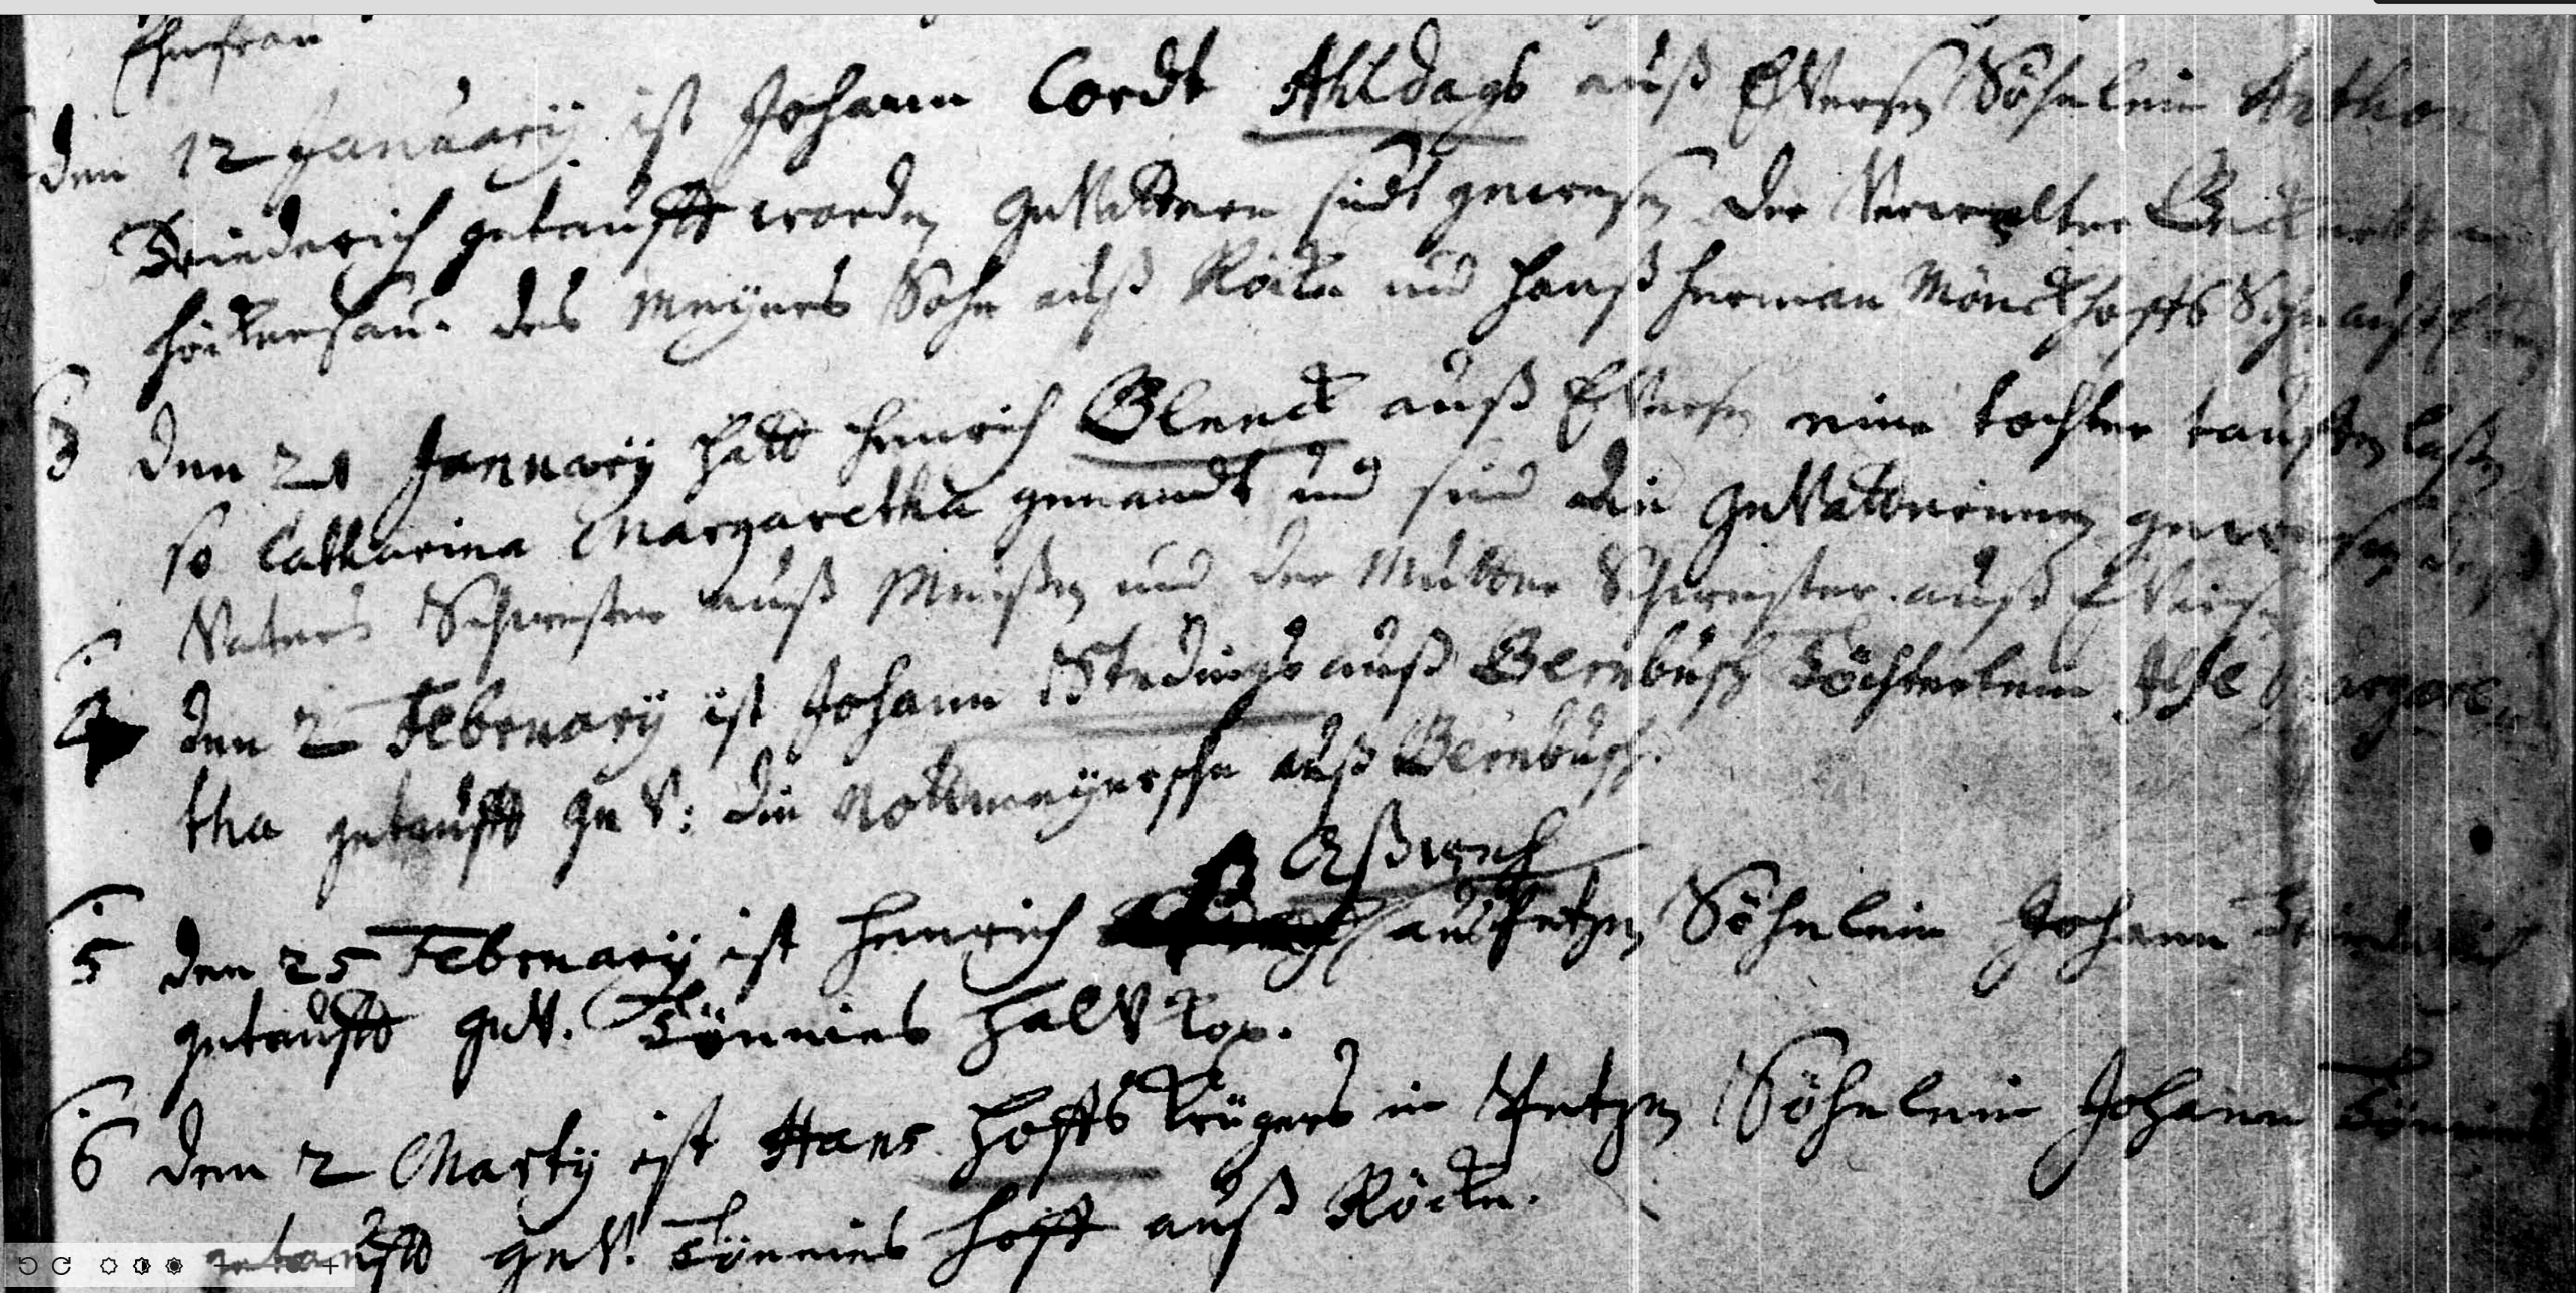 Ehefrau
den 12 January ist Johann Cordt Ahldags auß EVersen Söhnlein Anthon
Friederich getaufft worden GeVattern sindt gewesen der Verwalter
des Meyers Sohn auß Röcke und Hanß Herman Mönckhoffs Sohn auß
3 den 21 January hatt Henrich Blenck auß EVersen eine tochter tauffen laßen
so Catharina Margaretha genandt und sind die GeVatterinnen gewesen des
Vaters Schwester auß Meißen und der Mutter Schwester auß EVersen
4 den 2 February ist Johann Stedings auß Bernbusch Töchterlein Ilse Margare
tha getaufft GeV: die Nottmeyersche auß Bernbusch.
5 den 25 February ist Henrich aus Petzen Söhnlein Johann Friederich
getaufft GeV. Tönnies HalVKop.
6 den 2 Marty ist Hans Hoffs Krügers in Petzen Söhnlein Johann Tönnies
getaufft GeV. Tönnies Hofft auß Röcke.